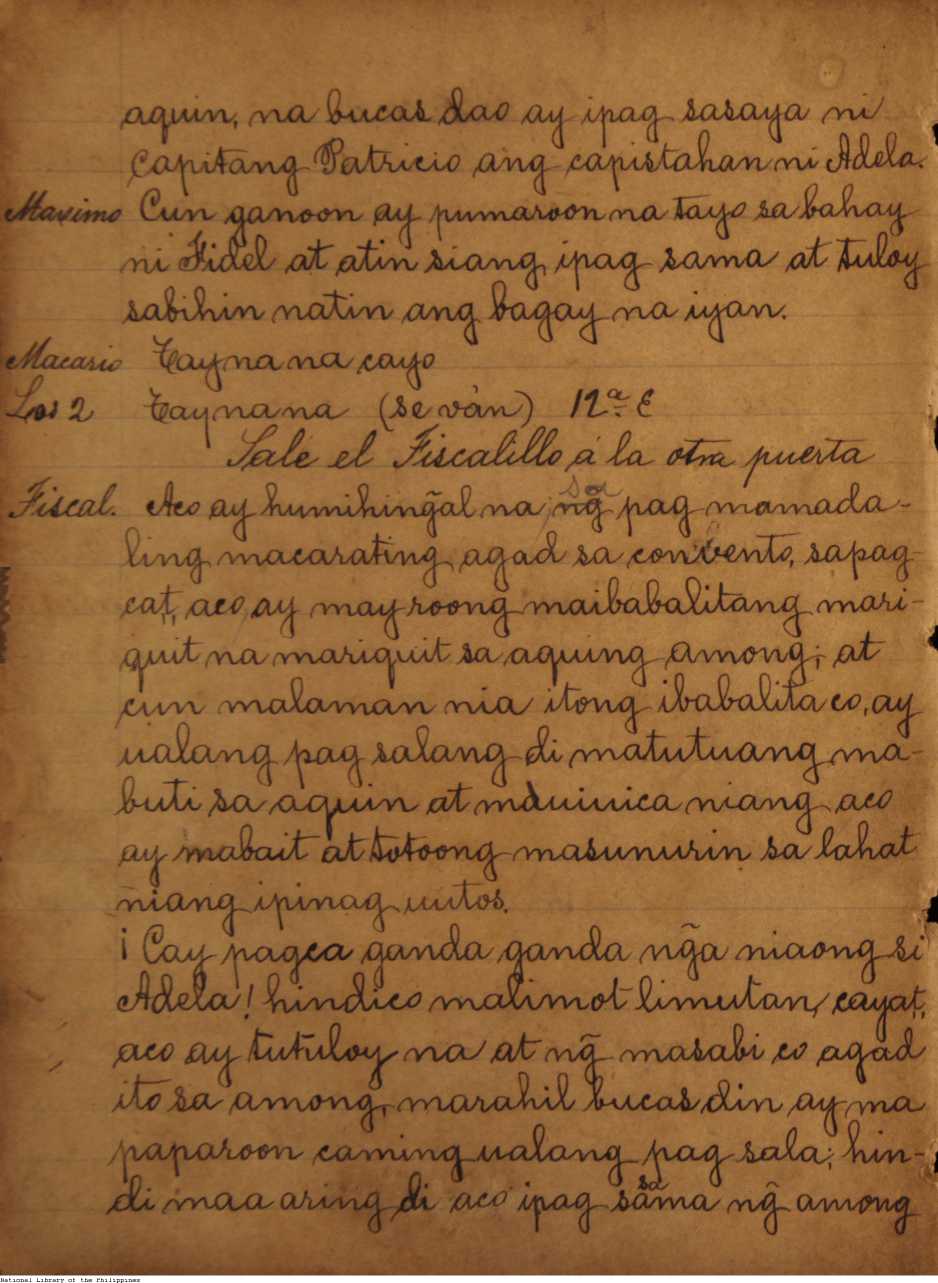 aquin, na bucas dao ay ipag sasaya ni
Capitang Patricio ang capistahan ni Adela.
Maximo Cun ganoon ay pumaroon na tayo sa bahay
ni Fidel at atin siang ipag sama at tuloy
sabihin natin ang bagay na iyan.
Macario Tayna na cayo
Los 2 Tayna na (se ván) 12ª E
Sale el Fiscalillo á la otra puerta
sa
Fiscal. Aco ay humihing̃al na ng̃ pag mamada-
ling macarating agad sa convento, sapag
cat, aco ay may roong maibabalitang mari-
quit na mariquit sa aquing among; at
cun malaman nia itong ibabalita co, ay
ualang pag salang di matutuang ma-
buti sa aquin at mauiuica niang aco
ay mabait at totoong masunurin sa lahat
niang ipinag uutos.
¡Cay pagca ganda ganda ng̃a niaong si
Adela! hindico malimot limutan, cayat,
aco ay tutuloy na at ng̃ masabi co agad
ito sa among, marahil bucas din ay ma
paparoon caming ualang pag sala; hin-
sa
di maa aring di aco ipag sama ng̃ among
National Library of the Philippines